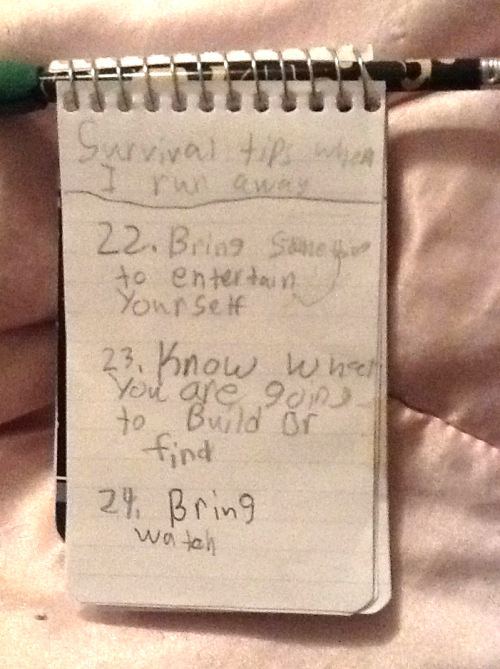 Survival tips when
I run away
22. Bring
to entertain
Yourself
23. Know
You are going
to Build or
find
24. Bring
watch